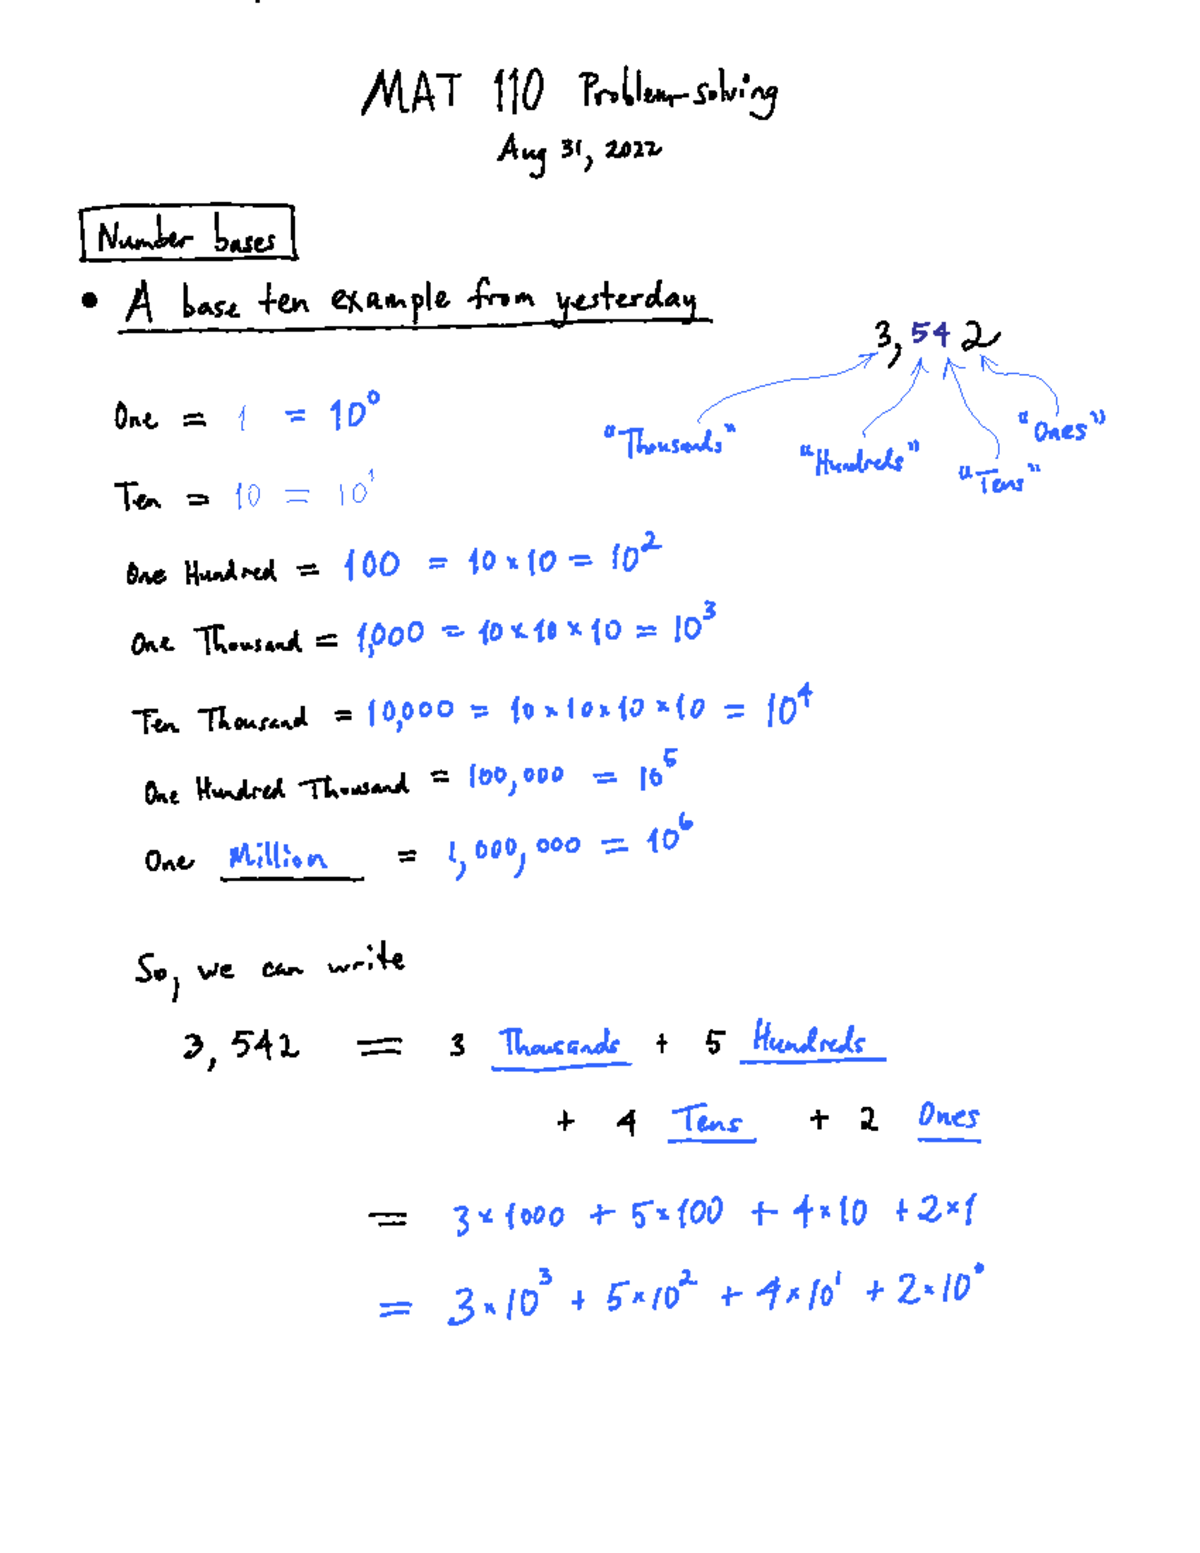 MAT 110 Problem-solving
Aug 31, 2022
Number bases
• A base ten example from yesterday
3,542
"Thousands" "Hundreds" "Tens" "Ones"
One = 1 = 10⁰
Ten = 10 = 10¹
One Hundred = 100 = 10 × 10 = 10²
One Thousand = 1,000 = 10 × 10 × 10 = 10³
Ten Thousand = 10,000 = 10 × 10 × 10 × 10 = 10⁴
One Hundred Thousand = 100,000 = 10⁵
One Million = 1,000,000 = 10⁶
So, we can write
3,542 = 3 Thousands + 5 Hundreds
+ 4 Tens + 2 Ones
= 3 × 1000 + 5 × 100 + 4 × 10 + 2 × 1
= 3 × 10³ + 5 × 10² + 4 × 10¹ + 2 × 10⁰